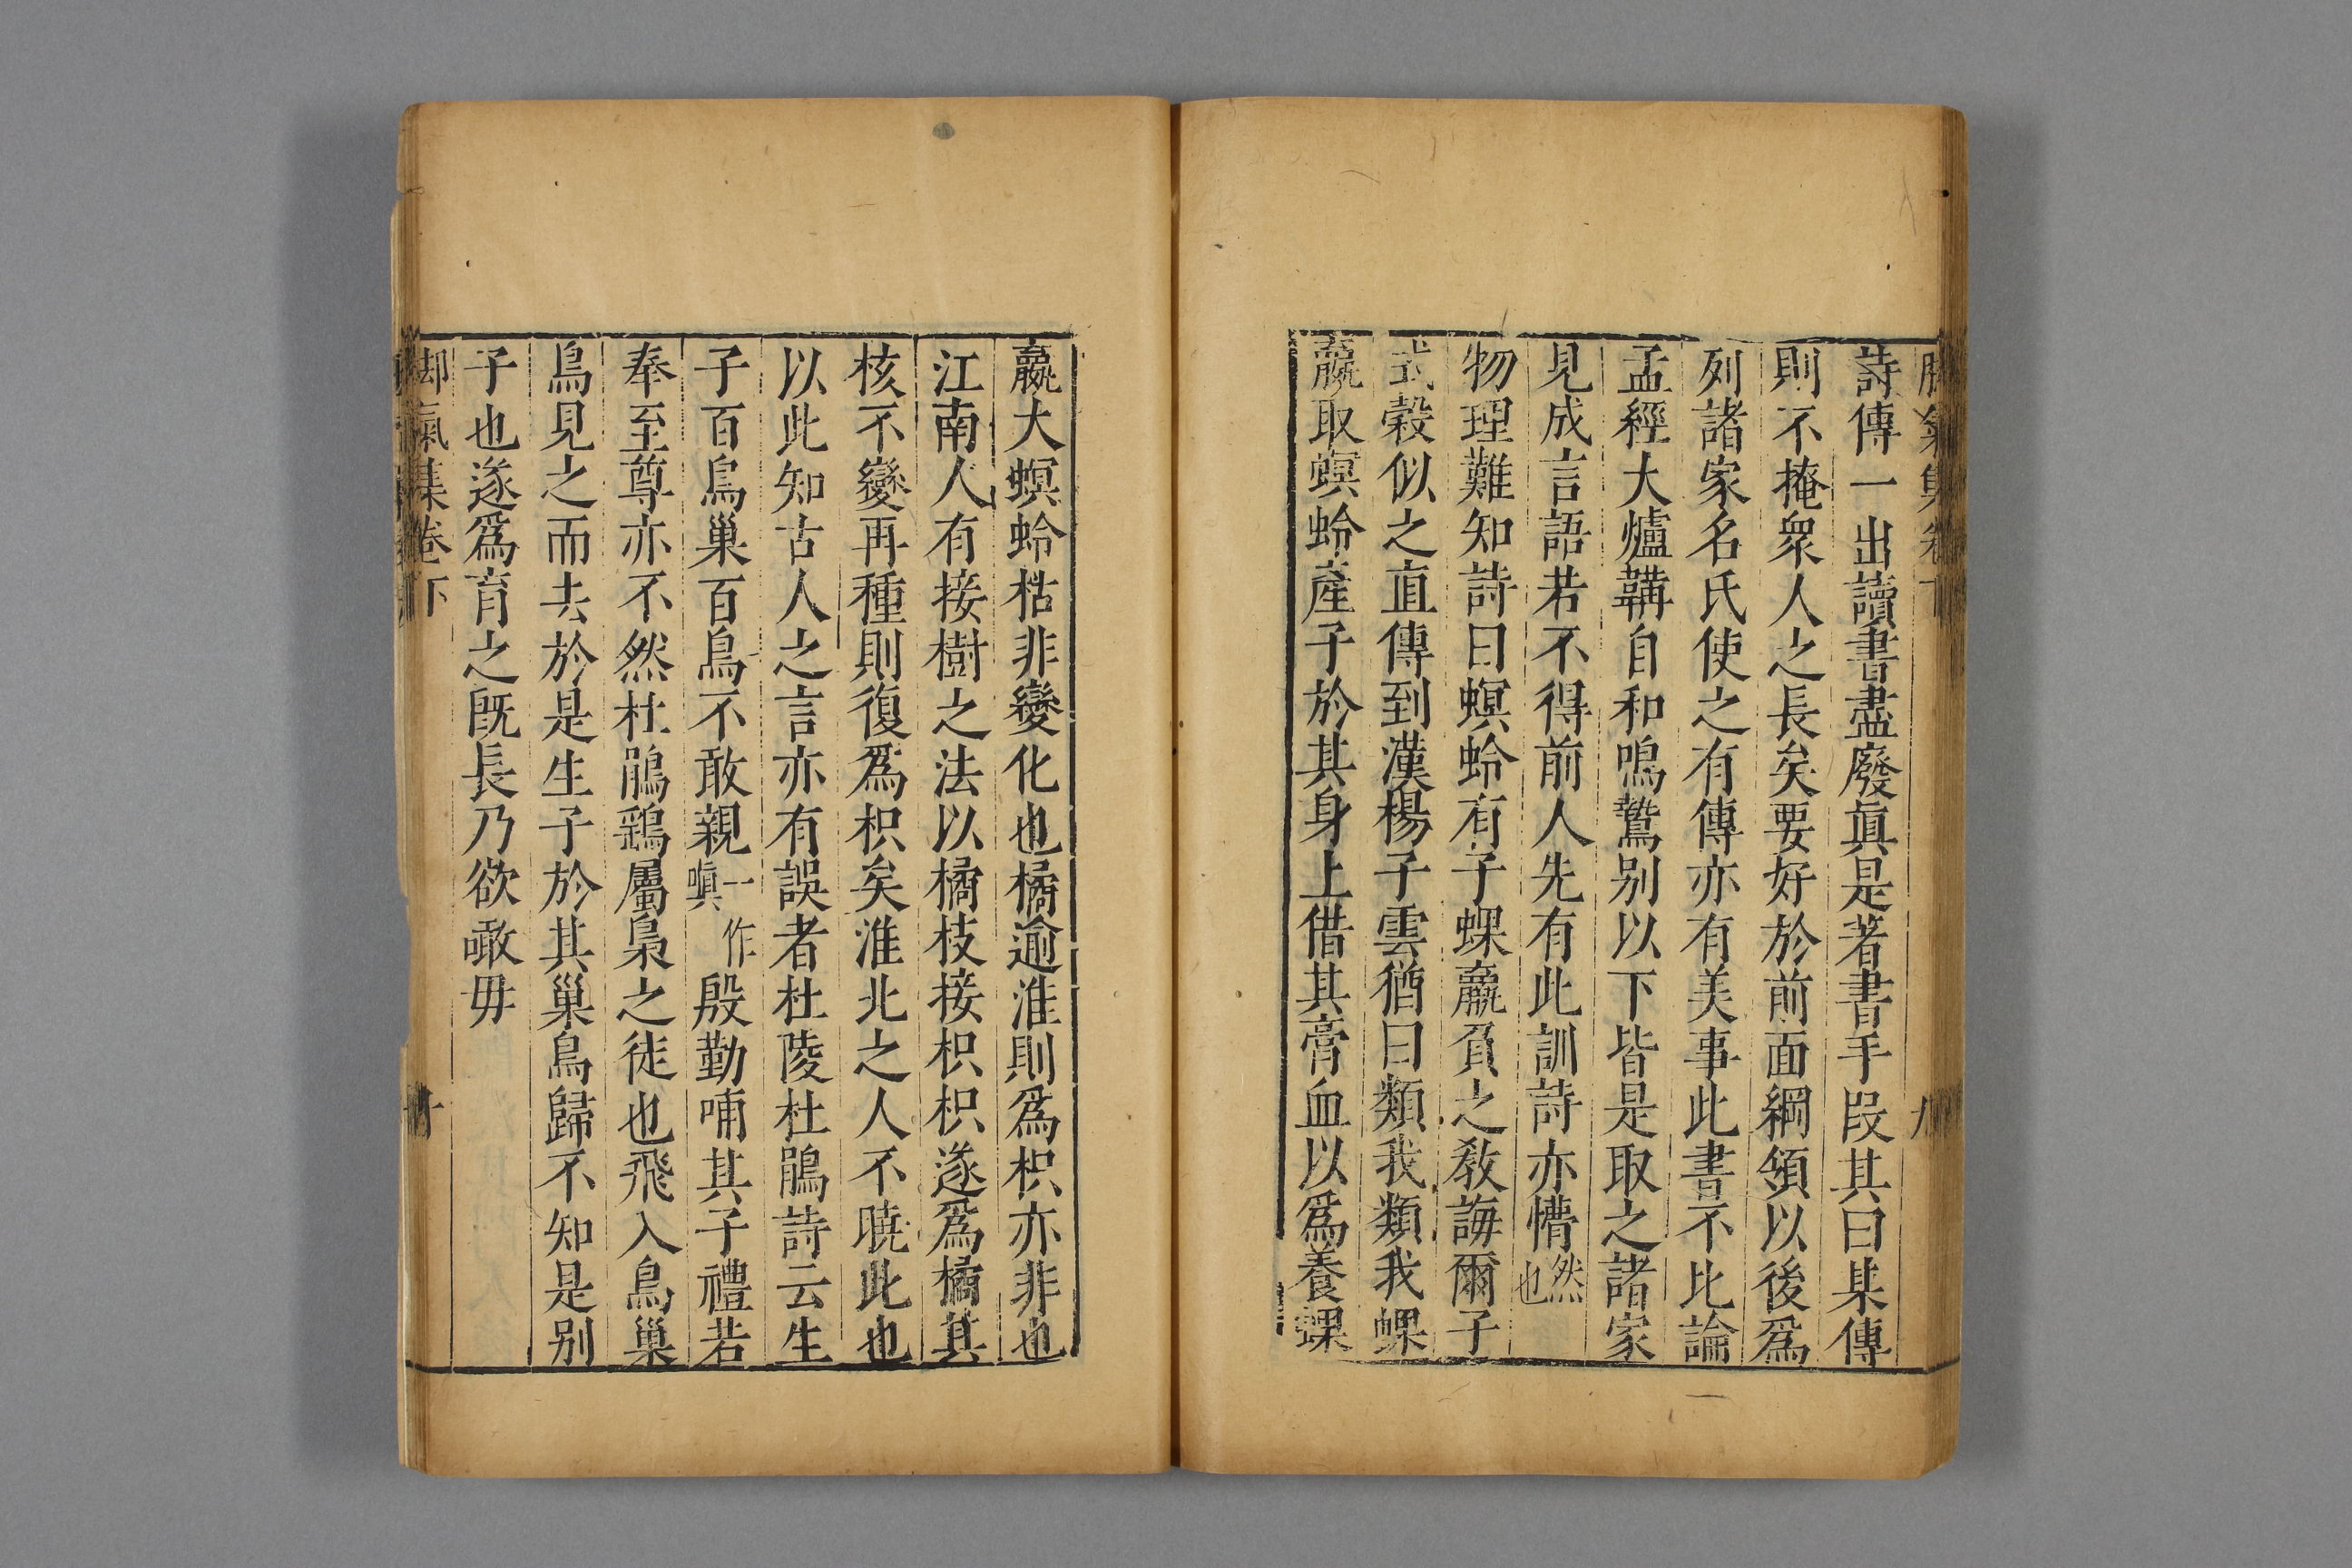 腳氣集卷下 九
詩傳一出讀書盡廢眞是著書手段其曰某傳
則不掩衆人之長矣要好於前面綱領以後爲
列諸家名氏使之有傳亦有美事此書不比論
孟經大爐鞲自和鳴鷙别以下皆是取之諸家
見成言語若不得前人先有此訓詩亦懵然也
物理難知詩曰螟蛉有子蜾蠃負之教誨爾子
式穀似之直傳到漢楊子雲猶曰類我類我蜾
蠃取螟蛉產子於其身上借其膏血以爲養蜾
蠃大螟蛉枯非變化也橘逾淮則爲枳亦非也
江南人有接樹之法以橘枝接枳枳遂爲橘其
核不變再種則復爲枳矣淮北之人不曉此也
以此知古人之言亦有誤者杜陵杜鵑詩云生
子百鳥巢百鳥不敢親一作嗔殷勤哺其子禮若
奉至尊亦不然杜鵑鶏屬梟之徒也飛入鳥巢
鳥見之而去於是生子於其巢鳥歸不知是别
子也遂爲育之既長乃欲噉毋
腳氣集卷下 十